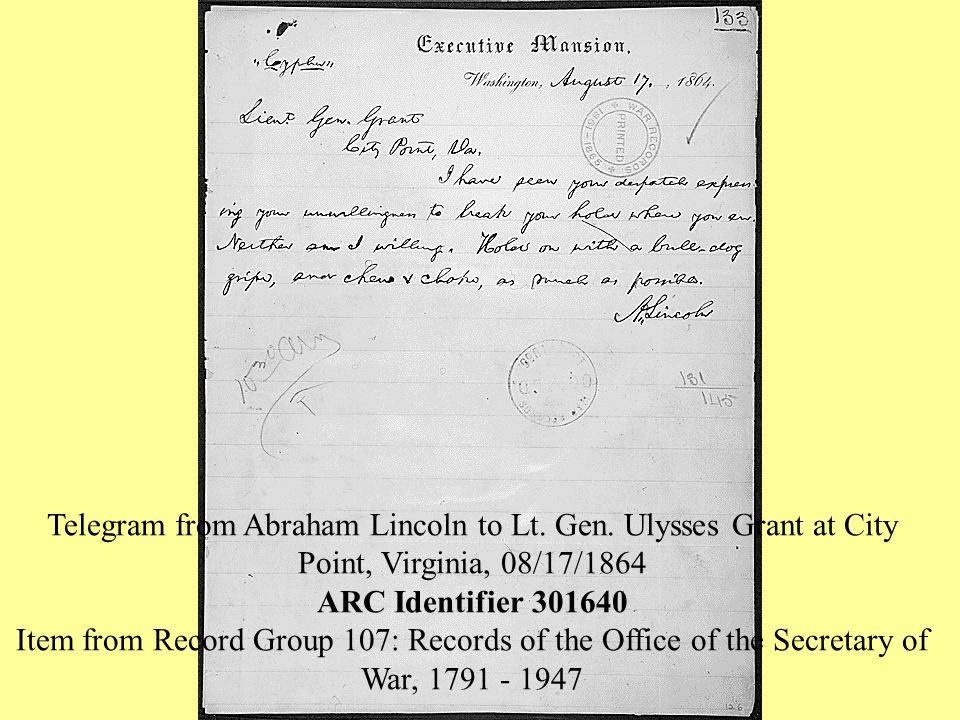 133
Executive Mansion,
"Cypher"
Washington, August 17. , 1864.
Lieut. Gen. Grant
City Point, Va.
I have seen your despatch express-
ing your unwillingness to break your hold where you are.
Neither am I willing. Hold on with a bull-dog
gripe, and chew & choke, as much as possible.
A. Lincoln
WAR RECORDS
1861-1865
PRINTED
10 30 AM
131
145
Telegram from Abraham Lincoln to Lt. Gen. Ulysses Grant at City
Point, Virginia, 08/17/1864
ARC Identifier 301640
Item from Record Group 107: Records of the Office of the Secretary of
War, 1791 - 1947
126